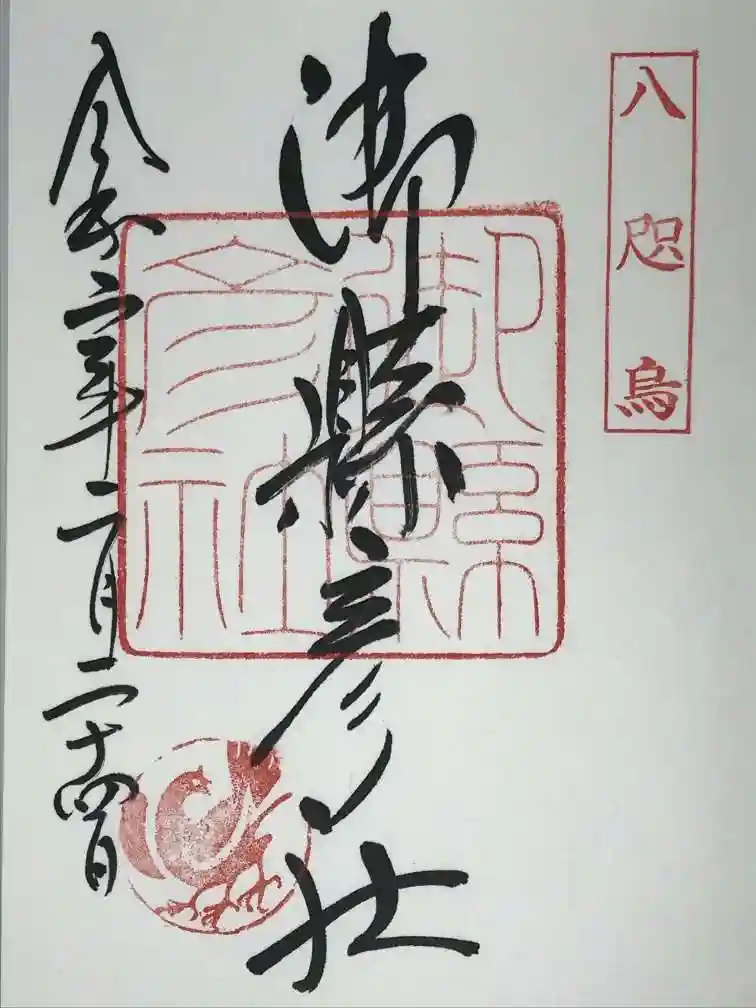 八咫烏
御縣彦社
御縣彦社
令和二年二月二十四日